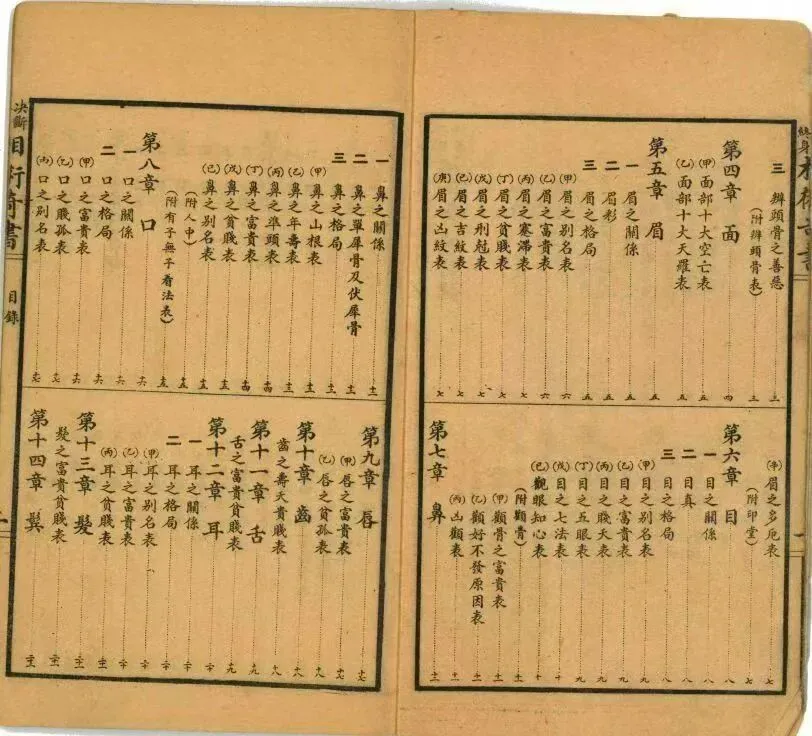 三 辨頭骨之善惡 三
(附辨頭骨表) 三
第四章 面 四
(甲)面部十大空亡表 五
(乙)面部十大天羅表 五
第五章 眉 五
一 眉之關係 五
二 眉彩 五
三 眉之格局 五
(甲)眉之別名表 六
(乙)眉之富貴表 六
(丙)眉之寒滯表 七
(丁)眉之貧賤表 七
(戊)眉之刑尅表 七
(己)眉之吉紋表 七
(庚)眉之凶紋表 七
(辛)眉之多厄表 七
(附印堂) 七
第六章 目 八
一 目之關係 八
二 目真 八
三 目之格局 八
(甲)目之別名表 八
(乙)目之富貴表 九
(丙)目之賤夭表 九
(丁)目之五眼表 九
(戊)目之七法表 十
(己)觀眼知心表 十
(附顴骨) 十一
(甲)顴骨之富貴表 十一
(乙)顴好不發原因表 十一
(丙)凶顴表 十一
第七章 鼻 十一
一 鼻之關係 十二
二 鼻之單犀骨及伏犀骨 十二
三 鼻之格局 十二
(甲)鼻之山根表 十三
(乙)鼻之年壽表 十三
(丙)鼻之準頭表 十四
(丁)鼻之富貴表 十四
(戊)鼻之貧賤表 十五
(己)鼻之別名表 十五
(附人中) 十五
(附有子無子看法表) 十五
第八章 口 十六
一 口之關係 十六
二 口之格局 十六
(甲)口之富貴表 十六
(乙)口之賤孤表 十七
(丙)口之別名表 十七
第九章 唇 十七
(甲)唇之富貴表 十七
(乙)唇之貧孤表 十八
第十章 齒 十八
齒之壽夭貴賤表 十八
第十一章 舌 十九
舌之富貴貧賤表 十九
第十二章 耳
一 耳之關係
二 耳之格局
(甲)耳之別名表
(乙)耳之富貴表
(丙)耳之貧賤表
第十三章 髮
髮之富貴貧賤表
第十四章 鬢
決斷相術奇書
目錄